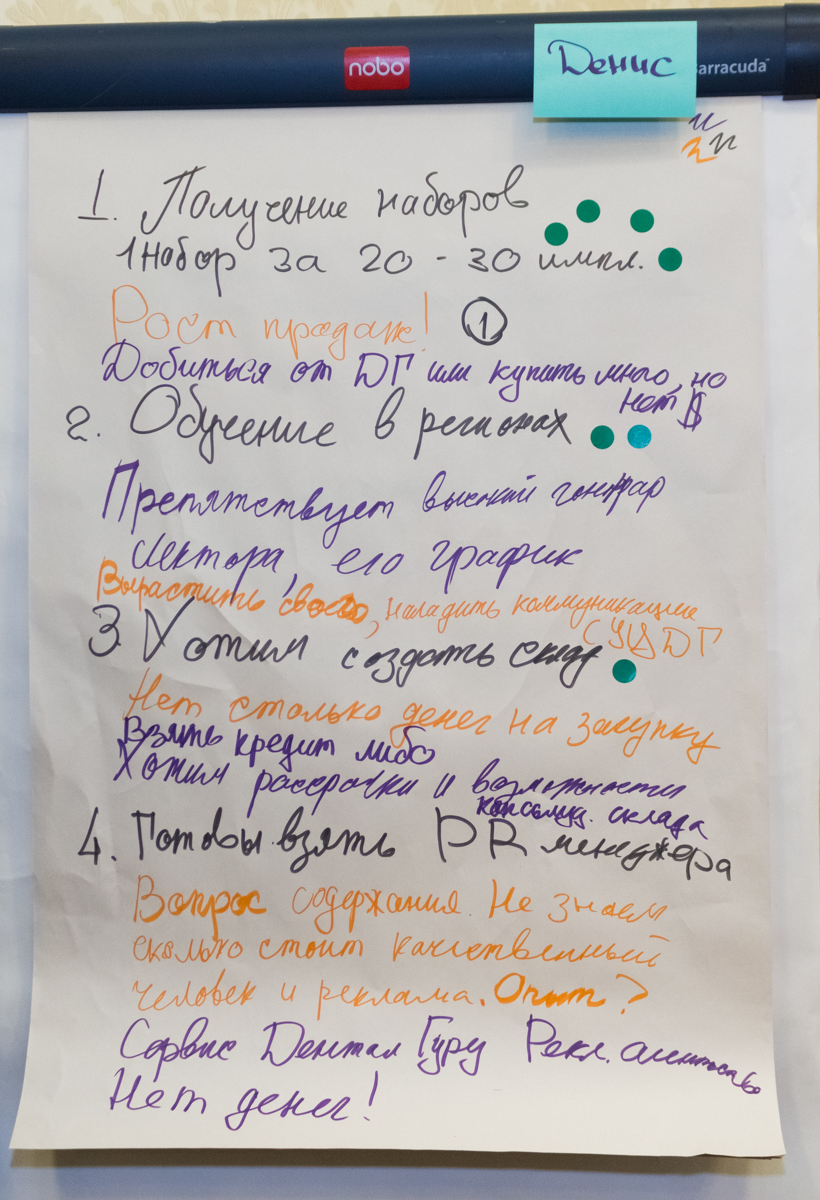 nobo
Денис
Barracuda
1. Получение наборов
1 набор за 20 - 30 импл.
Рост продаж! 1
Добиться от ДГ или купить много, но
нет $
2. Обучение в регионах
Препятствует высокий гонорар
лектора, его график
Вырастить своего, наладить коммуникацию
ДГ
3. Хотим создать склад
Нет столько денег на закупку
Взять кредит либо
Хотим рассрочки и возможности
склада
4. Готовы взять PR менеджера
Вопрос содержания. Не знаем
сколько стоит качественный
человек и реклама. Опыт?
Сервис Дентал Гуру Рекл. агентство
Нет денег!